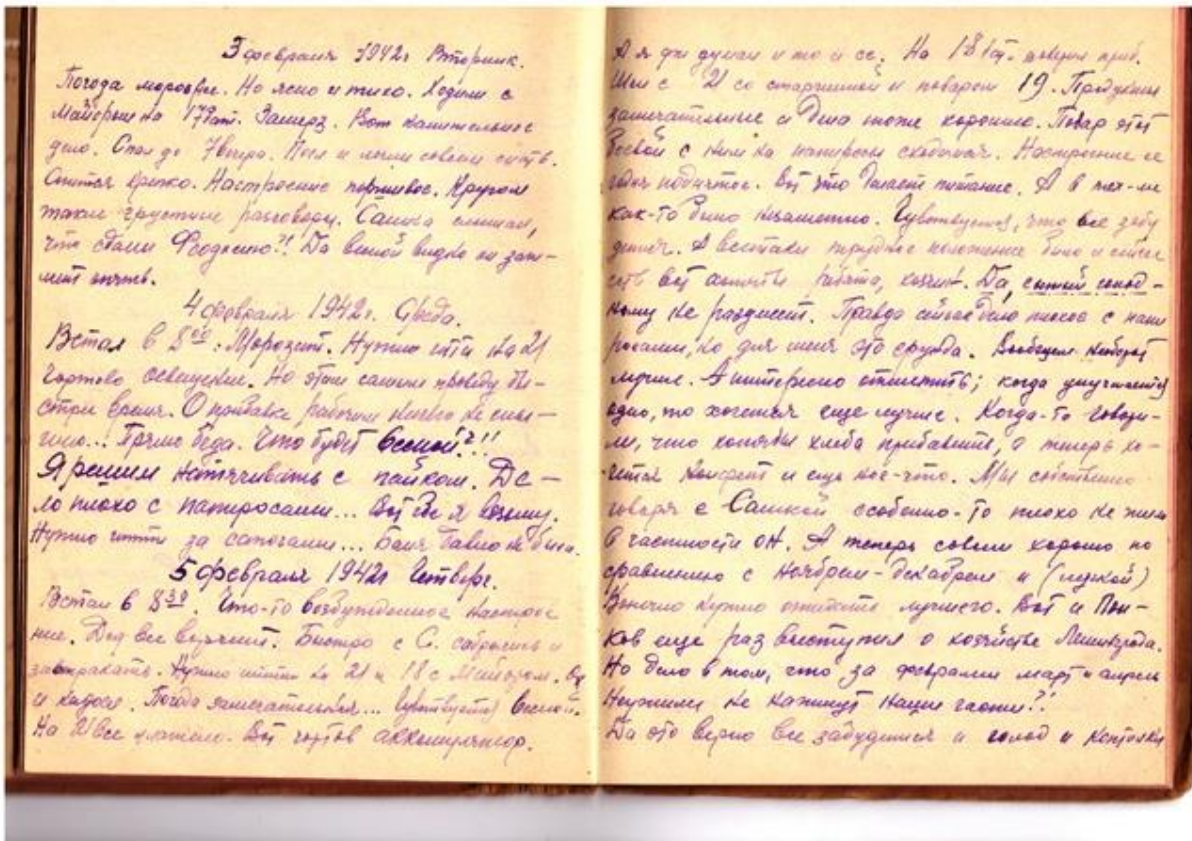 3 февраля 1942г Вторник.
Погода морозная. Но ясно и тихо. Ходили с
Майором на 17 бат. Замерз. Вот канительное
дело. Спал до 7 вечера. Поел и легли совсем спать.
Спится крепко. Настроение паршивое. Кругом
такие грустные разговоры. Сашка слышал,
что сдали Феодосию?! Да весной видно он
начнет опять.
4 февраля 1942г. Среда.
Встал в 8⁰⁰. Морозит. Нужно итти на 21
чортово освещение. Но этим самым проведу бы-
стрее время. О прибавке рабочим ничего не слы-
шно... Прямо беда. Что будет весной?!!
Я решил натягивать с пайком. Де-
ло плохо с папиросами... Вот где я возьму.
Нужно итти за сапогами... Баня давно не была.
5 февраля 1942г Четверг.
Встал в 8³⁰. Что-то возбужденное настрое
ние. Дед все ворчит. Быстро с С. собрались и
завтракать. Нужно итти на 21 и 18 с Майором.
Погода замечательная... Чувствуется весной.
На 21 все
Вот чортов аккомулятор.
А я уж думал и то и се. На 18 бат.
Шел с 21 со старшиной и поваром 19. Продукты
замечательные и дела тоже хорошие. Повар этот
боевой с ним на папиросы Настроение се
годня Вот что делает питание. А в
как-то было незаметно. Чувствуется, что все забу
дется. А всетаки трудное положение было и сейчас
есть вот работа, Да, сытый голод-
ному не разумеет. Правда сейчас дело плохое с
но для меня это ерунда. Вообщем
лучше. А интересно отметить; когда улучшается
одно, то хочется еще лучше. Когда-то говори-
ли, что хотябы хлеба прибавили, а теперь хо-
чется конфет и еще кое-что. Мы собственно
говоря с Сашкой особенно-то плохо не жили
В частности он. А теперь совсем хорошо по
сравнению с Ноябрем-Декабрем и
Конечно нужно ожидать лучшего. Вот и Поп-
ков еще раз выступил о хозяйстве Ленинграда.
Но дело в том, что за февралем март и апрель
Неужели не нажмут наши части?!
Да это верно все забудется и голод и